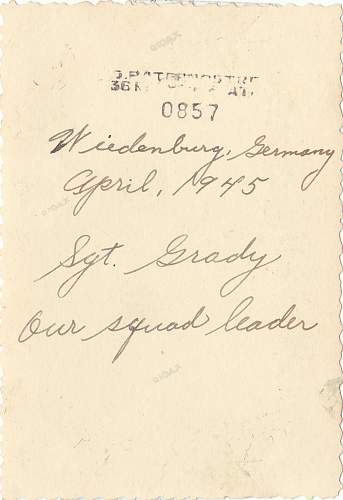 0857
Wiedenburg, Germany
April, 1945
Sgt. Grady
Our squad leader